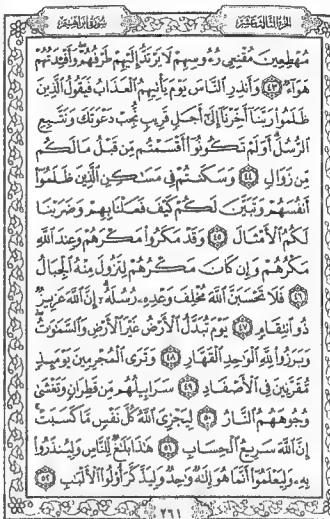 الجزء الثالث عشر
سورة إبراهيم
مُهْطِعِينَ مُقْنِعِي رُءُوسِهِمْ لَا يَرْتَدُّ إِلَيْهِمْ طَرْفُهُمْ وَأَفْئِدَتُهُمْ
هَوَاءٌ ٤٣ وَأَنذِرِ النَّاسَ يَوْمَ يَأْتِيهِمُ الْعَذَابُ فَيَقُولُ الَّذِينَ
ظَلَمُوا رَبَّنَا أَخِّرْنَا إِلَىٰ أَجَلٍ قَرِيبٍ نُّجِبْ دَعْوَتَكَ وَنَتَّبِعِ
الرُّسُلَ أَوَلَمْ تَكُونُوا أَقْسَمْتُم مِّن قَبْلُ مَا لَكُم
مِّن زَوَالٍ ٤٤ وَسَكَنتُمْ فِي مَسَاكِنِ الَّذِينَ ظَلَمُوا
أَنفُسَهُمْ وَتَبَيَّنَ لَكُمْ كَيْفَ فَعَلْنَا بِهِمْ وَضَرَبْنَا
لَكُمُ الْأَمْثَالَ ٤٥ وَقَدْ مَكَرُوا مَكْرَهُمْ وَعِندَ اللَّهِ
مَكْرُهُمْ وَإِن كَانَ مَكْرُهُمْ لِتَزُولَ مِنْهُ الْجِبَالُ
٤٦ فَلَا تَحْسَبَنَّ اللَّهَ مُخْلِفَ وَعْدِهِ رُسُلَهُ إِنَّ اللَّهَ عَزِيزٌ
ذُو انتِقَامٍ ٤٧ يَوْمَ تُبَدَّلُ الْأَرْضُ غَيْرَ الْأَرْضِ وَالسَّمَٰوَٰتُ
وَبَرَزُوا لِلَّهِ الْوَاحِدِ الْقَهَّارِ ٤٨ وَتَرَى الْمُجْرِمِينَ يَوْمَئِذٍ
مُّقَرَّنِينَ فِي الْأَصْفَادِ ٤٩ سَرَابِيلُهُم مِّن قَطِرَانٍ وَتَغْشَىٰ
وُجُوهَهُمُ النَّارُ ٥٠ لِيَجْزِيَ اللَّهُ كُلَّ نَفْسٍ مَّا كَسَبَتْ
إِنَّ اللَّهَ سَرِيعُ الْحِسَابِ ٥١ هَٰذَا بَلَاغٌ لِّلنَّاسِ وَلِيُنذَرُوا
بِهِ وَلِيَعْلَمُوا أَنَّمَا هُوَ إِلَٰهٌ وَاحِدٌ وَلِيَذَّكَّرَ أُولُوا الْأَلْبَابِ ٥٢
٢٦١